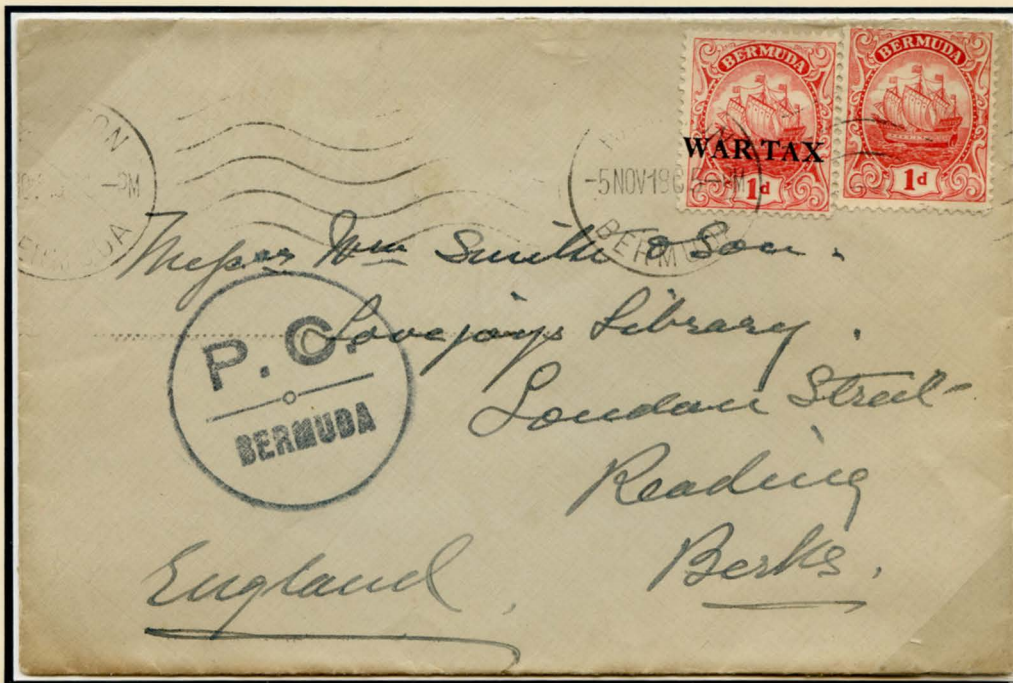 BERMUDA
WAR TAX
1d
BERMUDA
1d
-5 NOV 18
BERMUDA
-PM
Messrs Wm Smith & Son.
Lovejoys Library.
London Street
Reading
Berks.
England.
P. C.
BERMUDA